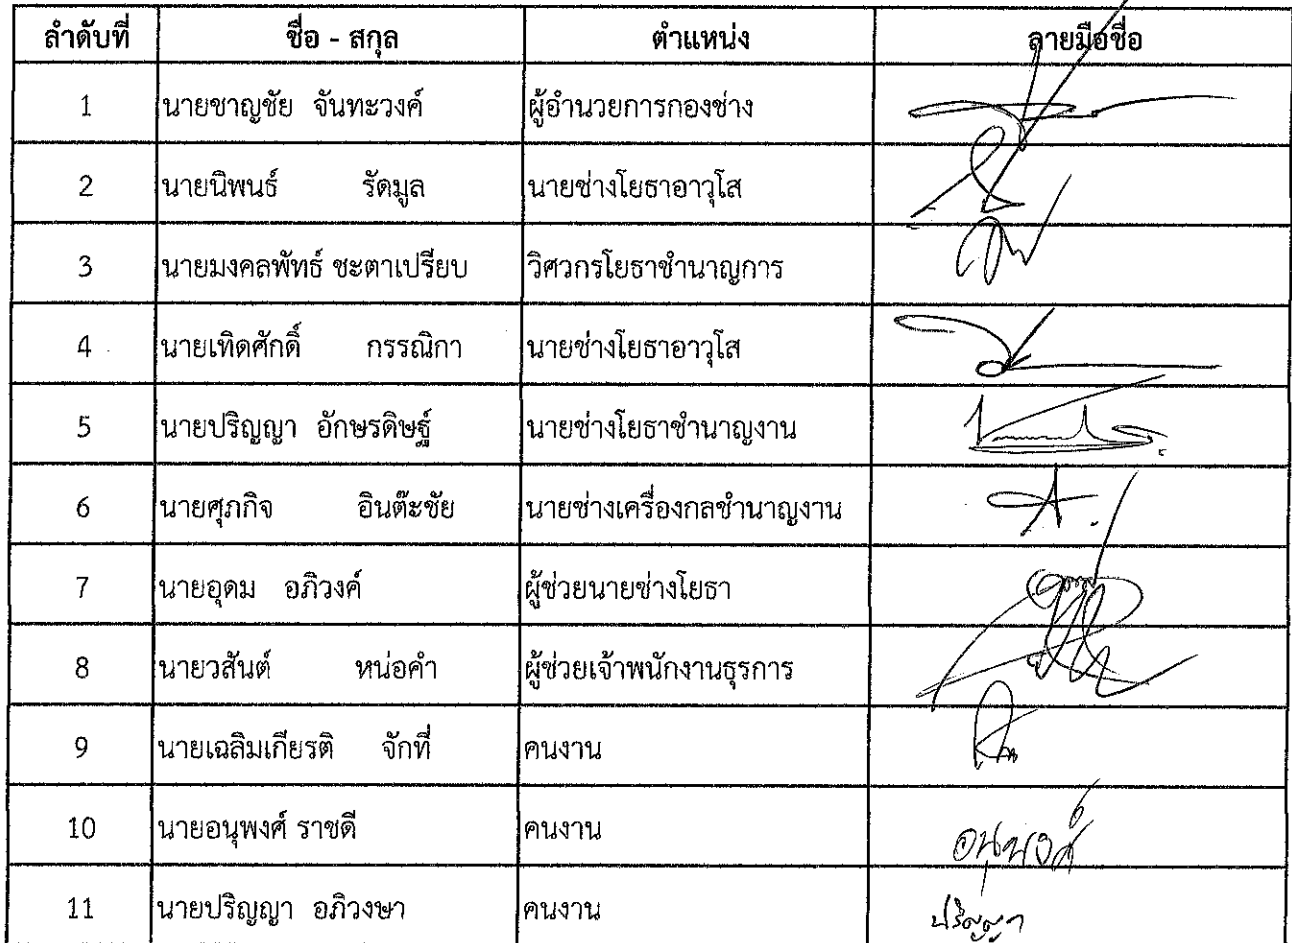 ลำดับที่ ชื่อ - สกุล ตำแหน่ง ลายมือชื่อ
1 นายชาญชัย จันทะวงค์ ผู้อำนวยการกองช่าง
2 นายนิพนธ์ รัดมูล นายช่างโยธาอาวุโส
3 นายมงคลพัทธ์ ชะตาเปรียบ วิศวกรโยธาชำนาญการ
4 นายเทิดศักดิ์ กรรณิกา นายช่างโยธาอาวุโส
5 นายปริญญา อักษรดิษฐ์ นายช่างโยธาชำนาญงาน
6 นายศุภกิจ อินต๊ะชัย นายช่างเครื่องกลชำนาญงาน
7 นายอุดม อภิวงค์ ผู้ช่วยนายช่างโยธา
8 นายวสันต์ หน่อคำ ผู้ช่วยเจ้าพนักงานธุรการ
9 นายเฉลิมเกียรติ จักที่ คนงาน
10 นายอนุพงศ์ ราชดี คนงาน อนุพงศ์
11 นายปริญญา อภิวงษา คนงาน ปริญญา